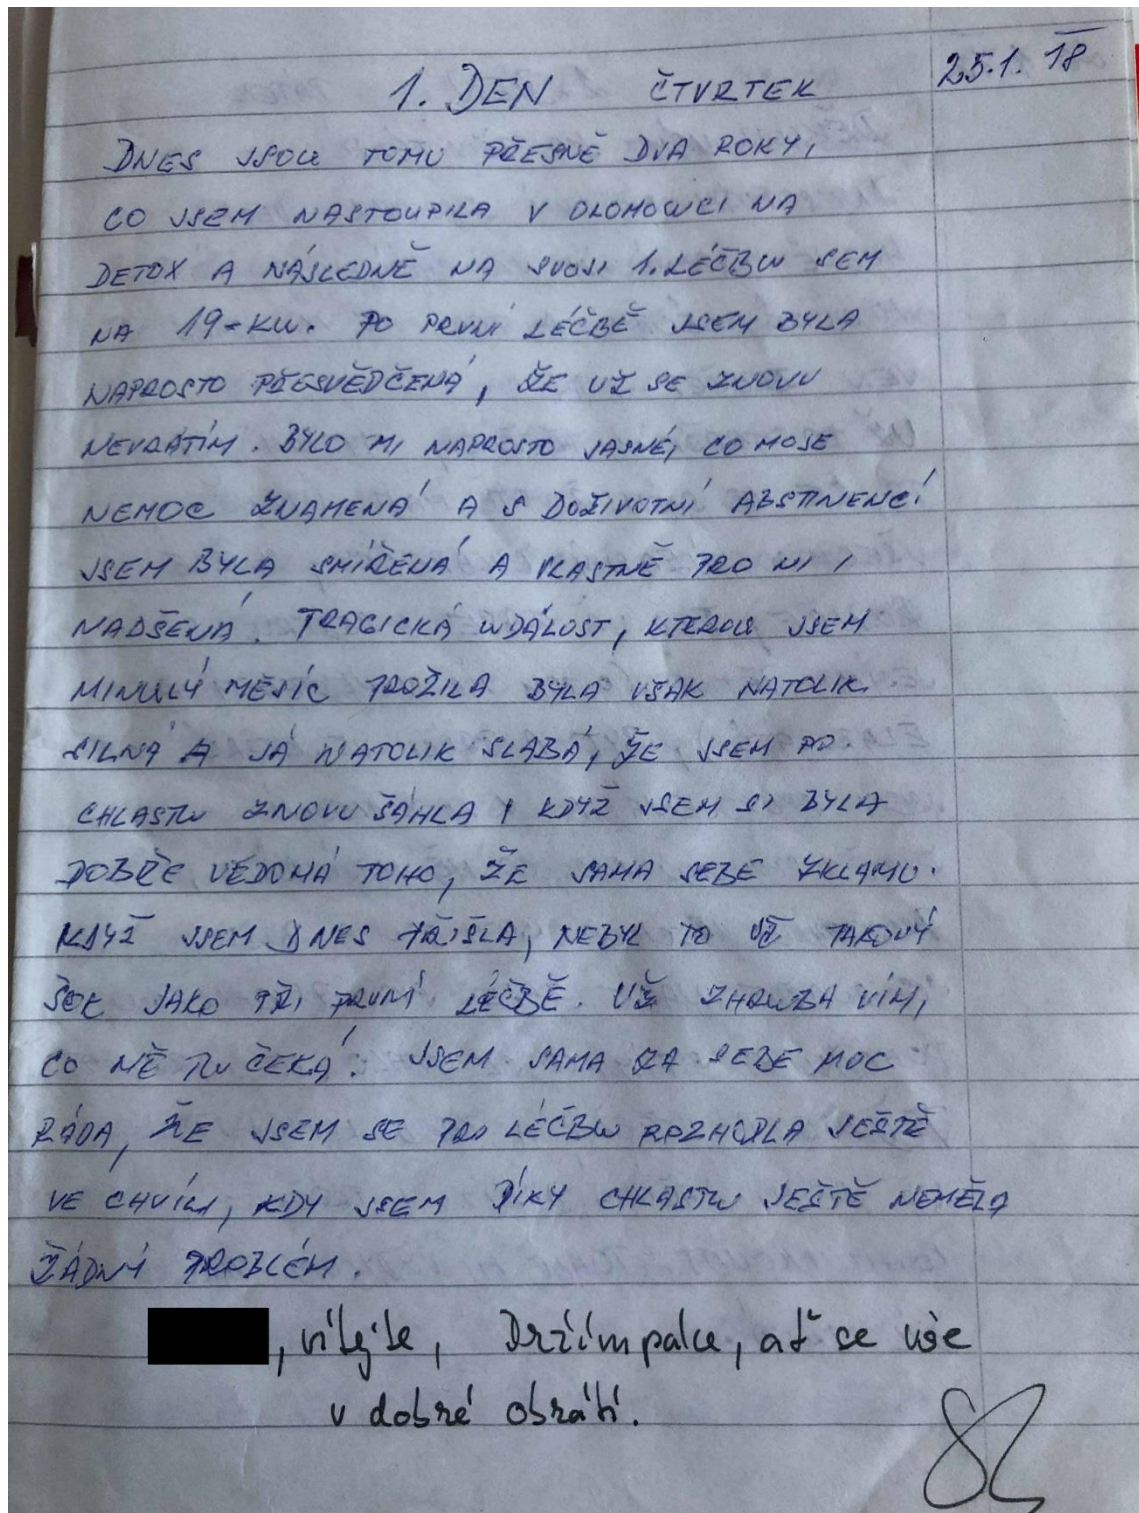 1. DEN ČTVRTEK 25.1.18
DNES JSOU TOMU PŘESNĚ DVA ROKY,
CO JSEM NASTOUPILA V OLOMOUCI NA
DETOX A NÁSLEDNĚ NA SVOJI 1. LÉČBU SEM
NA 19-KU. PO PRVNÍ LÉČBĚ JSEM BYLA
NAPROSTO PŘESVĚDČENÁ, ŽE UŽ SE ZNOVU
NEVRÁTÍM. BYLO MI NAPROSTO JASNÉ, CO MOJE
NEMOC ZNAMENÁ A S DOŽIVOTNÍ ABSTINENCÍ
JSEM BYLA SMÍŘENÁ A VLASTNĚ PRO NI I
NADŠENÁ. TRAGICKÁ UDÁLOST, KTEROU JSEM
MINULÝ MĚSÍC PROŽILA BYLA VŠAK NATOLIK
SILNÁ A JÁ NATOLIK SLABÁ, ŽE JSEM PO
CHLASTU ZNOVU ŠÁHLA I KDYŽ JSEM SI BYLA
DOBŘE VĚDOMÁ TOHO, ŽE SAMA SEBE ZKLAMU.
KDYŽ JSEM DNES PŘIŠLA, NEBYL TO UŽ TAKOVÝ
ŠOK JAKO PŘI PRVNÍ LÉČBĚ. UŽ ZHRUBA VÍM,
CO MĚ TU ČEKÁ. JSEM SAMA ZA SEBE MOC
RÁDA, ŽE JSEM SE PRO LÉČBU ROZHODLA JEŠTĚ
VE CHVÍLI, KDY JSEM DÍKY CHLASTU JEŠTĚ NEMĚLA
ŽÁDNÝ PROBLÉM.
, vítejte, Držím palce, ať se vše
v dobré obrátí.